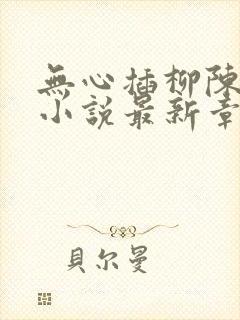 無心插柳陳
小說最新章
貝尔曼